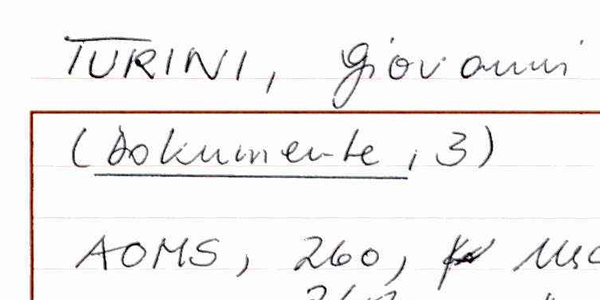 TURINI, Giovanni
(Dokumente, 3)
AOMS, 260,